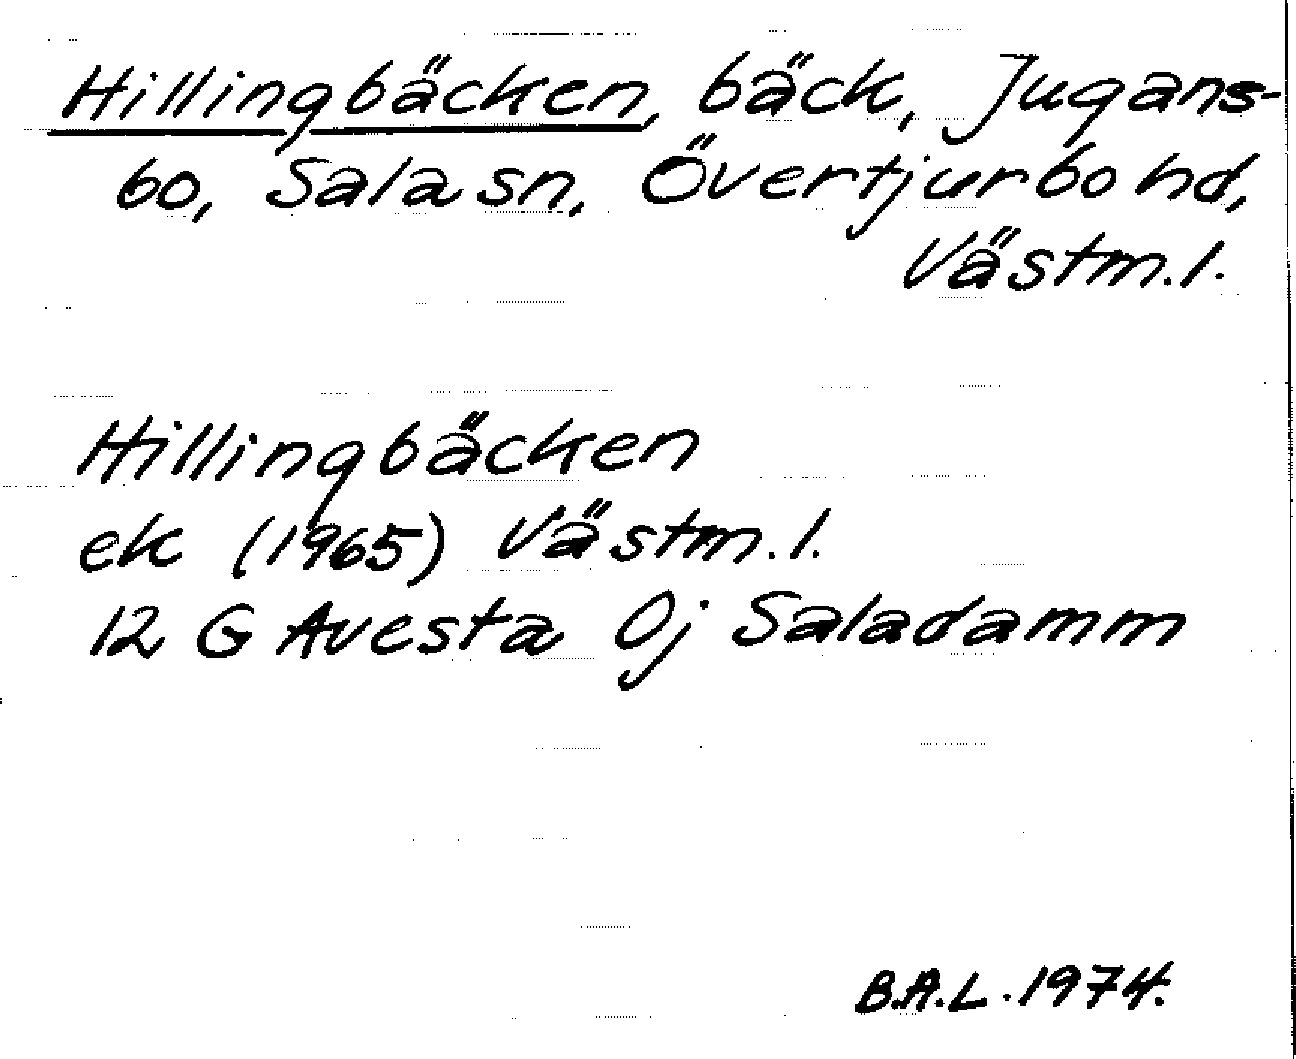 Hillingbäcken, bäck, Jugans-
bo, Sala sn, Övertjurbo hd,
Västm.l.
Hillingbäcken
ek (1965) Västm.l.
12 G Avesta 0j Saladamm
B.A.L. 1974.